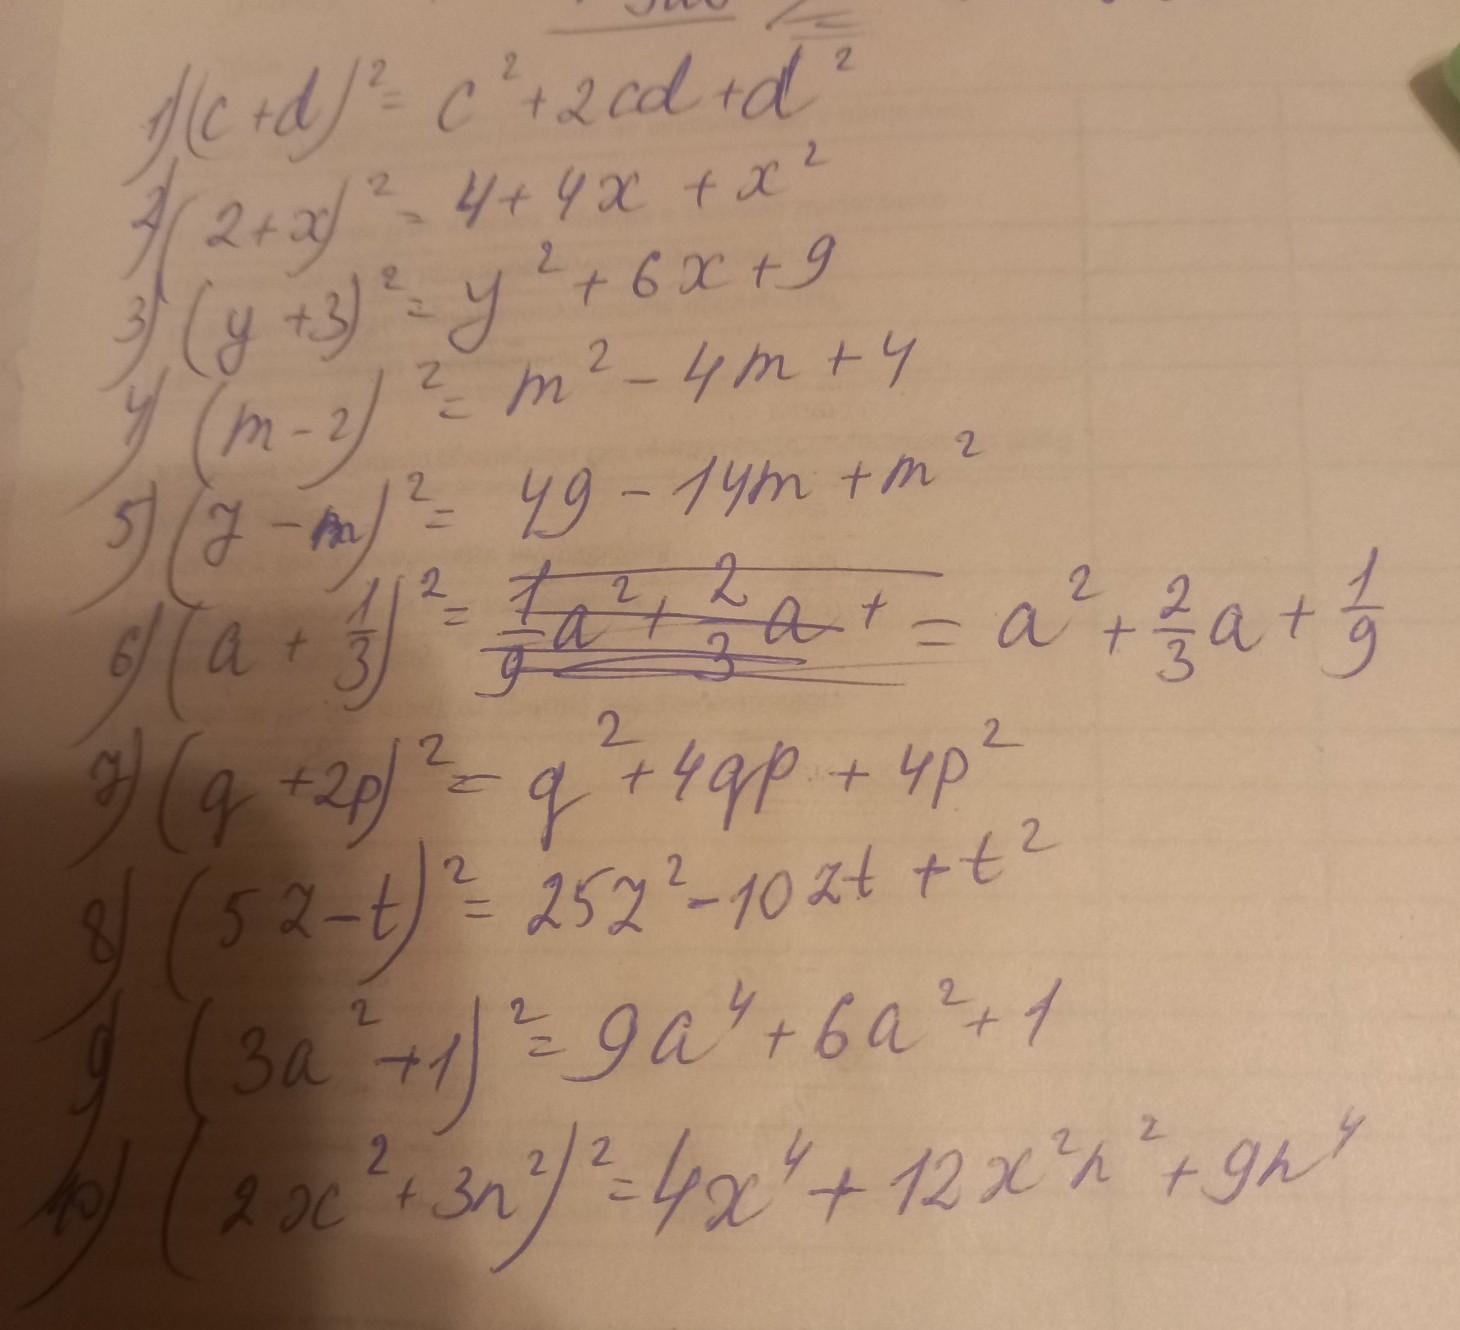 1) (c+d)² = c² + 2cd + d²
2) (2+x)² = 4 + 4x + x²
3) (y+3)² = y² + 6x + 9
4) (m-2)² = m² - 4m + 4
5) (7-m)² = 49 - 14m + m²
6) (a + 1/3)² = 1/9a² + 2/3a + = a² + 2/3a + 1/9
7) (q+2p)² = q² + 4qp + 4p²
8) (5z-t)² = 25z² - 10zt + t²
9) (3a²+1)² = 9a⁴ + 6a² + 1
10) (2x²+3n²)² = 4x⁴ + 12x²n² + 9n⁴